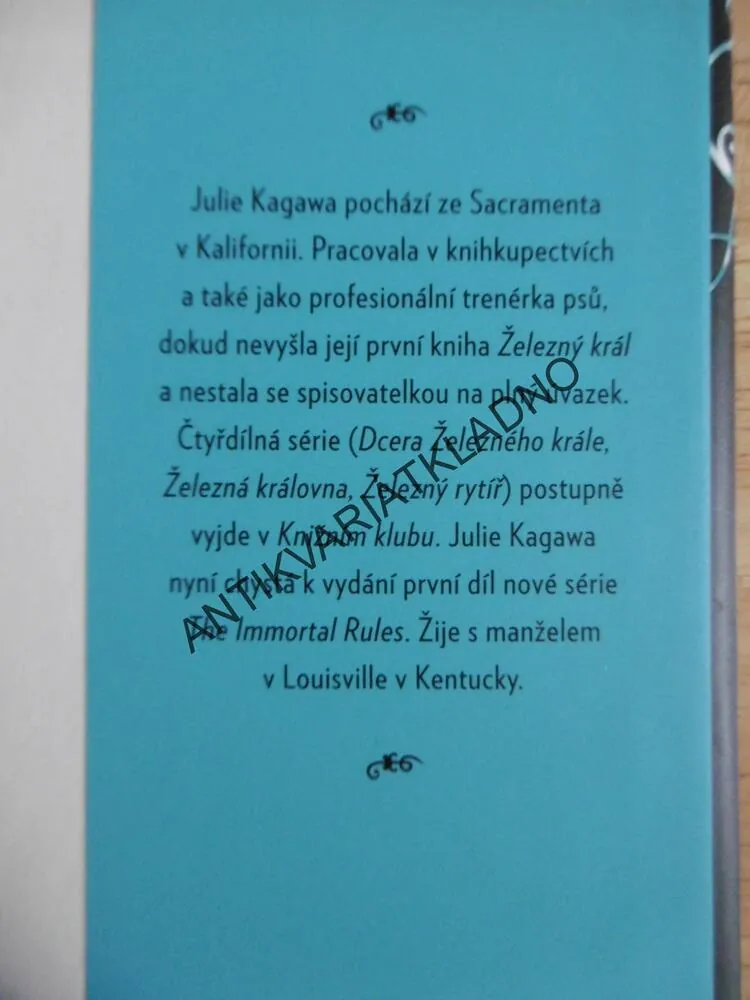 Julie Kagawa pochází ze Sacramenta
v Kalifornii. Pracovala v knihkupectvích
a také jako profesionální trenérka psů,
dokud nevyšla její první kniha Železný král
a nestala se spisovatelkou na plný úvazek.
Čtyřdílná série (Dcera Železného krále,
Železná královna, Železný rytíř) postupně
vyjde v Knižním klubu. Julie Kagawa
nyní chystá k vydání první díl nové série
The Immortal Rules. Žije s manželem
v Louisville v Kentucky.
ANTIKVARIATKLADNO